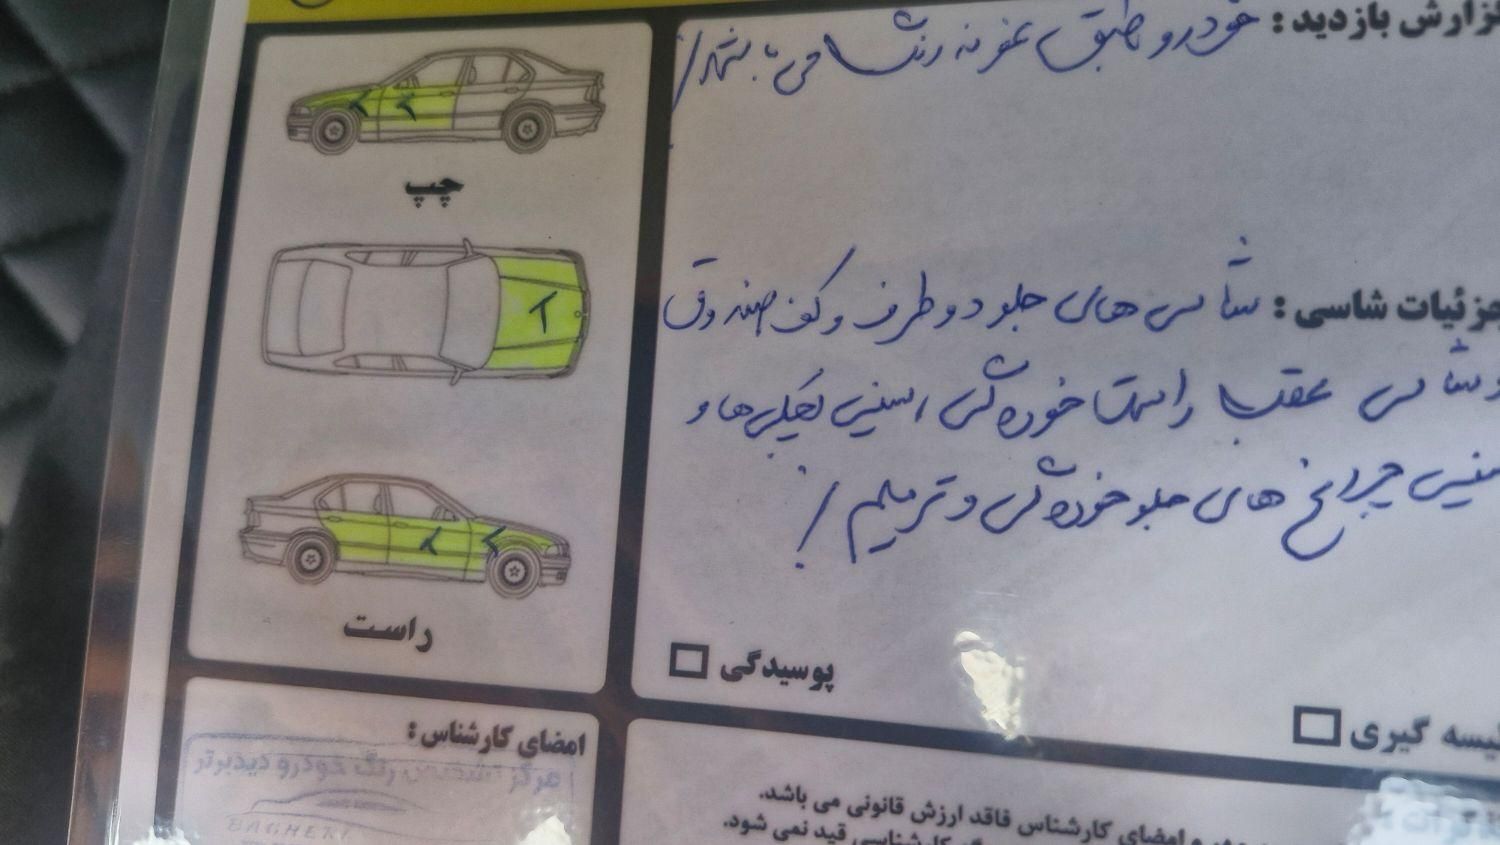 گزارش بازدید : خودرو طبق نمونه رنگ می باشد /
جزئیات شاسی : شاسی های جلو دو طرف و کف صندوق
و شاسی عقب راست خوردگی ، سینی بغلی ها و
سینی چراغ های جلو خوردگی و ترمیم /
پوسیدگی
لیسه گیری
چپ
راست
امضای کارشناس :
مرکز تشخیص رنگ خودرو دیدبرتر
BAGHERI
مهر و امضای کارشناس فاقد ارزش قانونی می باشد.
کارشناسی قید نمی شود.